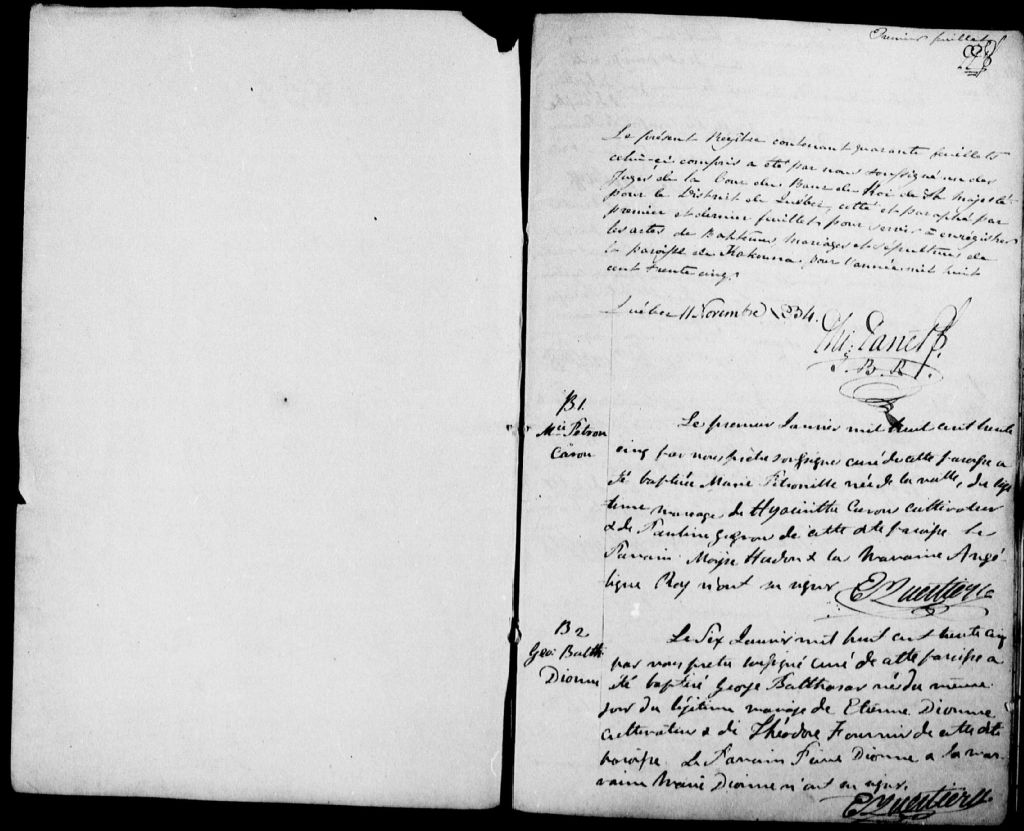 Premier feuillet
Le présent Regître contenant quarante feuillets
celui-ci compris a été par nous soussigné un des
Juges de la Cour du Banc du Roi de Sa Majesté
pour le District de Québec, cotté et paraphé par
premier et dernier feuillet, pour servir à enrégistrer
les actes de Baptêmes, Mariages et Sépultures de
la paroisse de Kakouna, pour l'année mil huit
cent trente cinq.
Québec 11 Novembre 1834.
J. B. R.
B1.
Mie Pétron
Caron
Le premier Janvier mil huit cent trente
cinq par nous prêtre soussigné curé de cette paroisse a
été baptisée Marie Pétronille née de la veille, du légi
time mariage de Hyacinthe Caron cultivateur
& de Pauline Gagnon de cette dite paroisse Le
Parrain Moyse Hudon & la Marraine Angé-
lique Roy n'ont su signer
B2
Geo: Balth
Dionne
Le Six Janvier mil huit cent trente cinq
par nous prêtre soussigné curé de cette paroisse a
été baptisé George Balthasar né du même
jour du légitime mariage de Etienne Dionne
cultivateur & de Théodore Fournier de cette dite
paroisse Le Parrain Dionne & la mar-
raine Marie Dionne n'ont su signer.